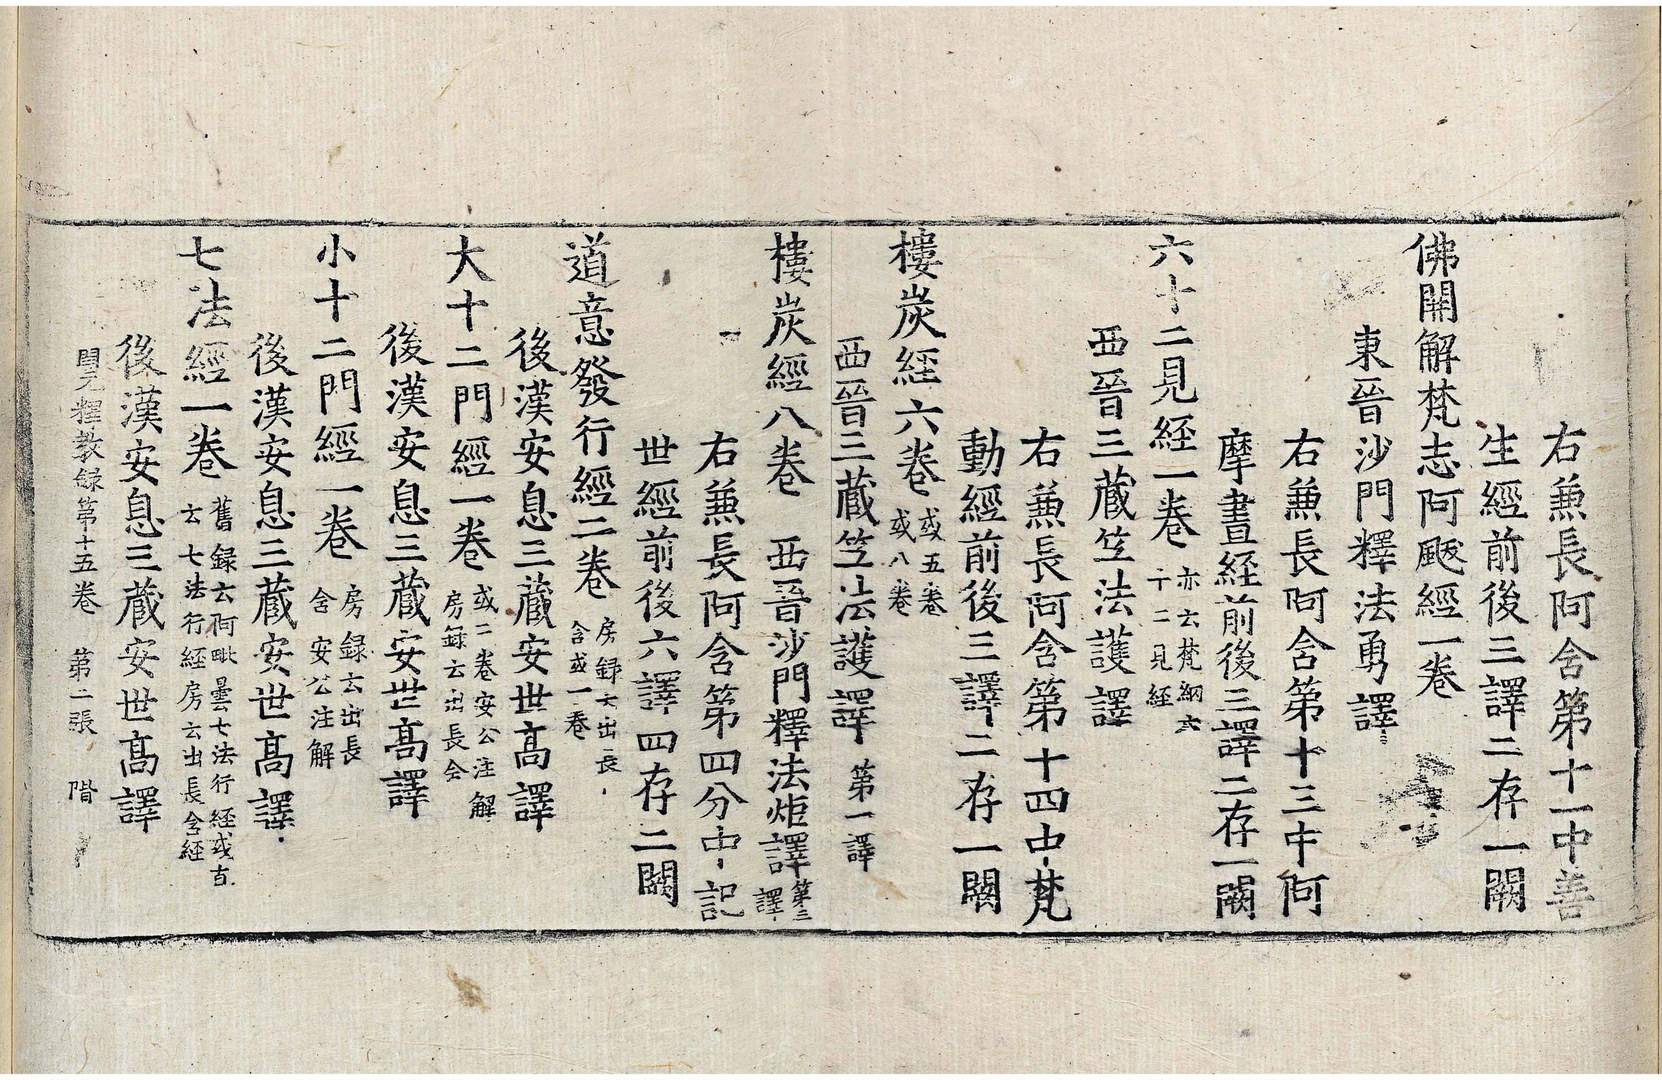 右兼長阿含第十一中善
生經前後三譯二存一闕
佛開解梵志阿颰經一卷
東晉沙門釋法勇譯
右兼長阿含第十三中阿
摩晝経前後三譯二存一闕
六十二見経一卷
亦云梵網六
十二見経
西晉三藏竺法護譯
右兼長阿含第十四中梵
動經前後三譯二存一闕
樓炭經六卷
或五卷
或八卷
西晉三藏竺法護譯 第一譯
樓炭經八卷 西晉沙門釋法炬譯
第三
譯
右兼長阿含第四分中記
世經前後六譯四存二闕
道意發行經二卷
房録云出長
含或一卷
後漢安息三藏安世高譯
大十二門經一卷
或二卷安公注解
房録云出長含
後漢安息三藏安世高譯
小十二門經一卷
房録云出長
含安公注解
後漢安息三藏安世高譯
七法經一卷
舊録云阿毗曇七法行経或直
云七法行経房云出長含経
後漢安息三藏安世高譯
開元釋教録第十五卷 第二張 階